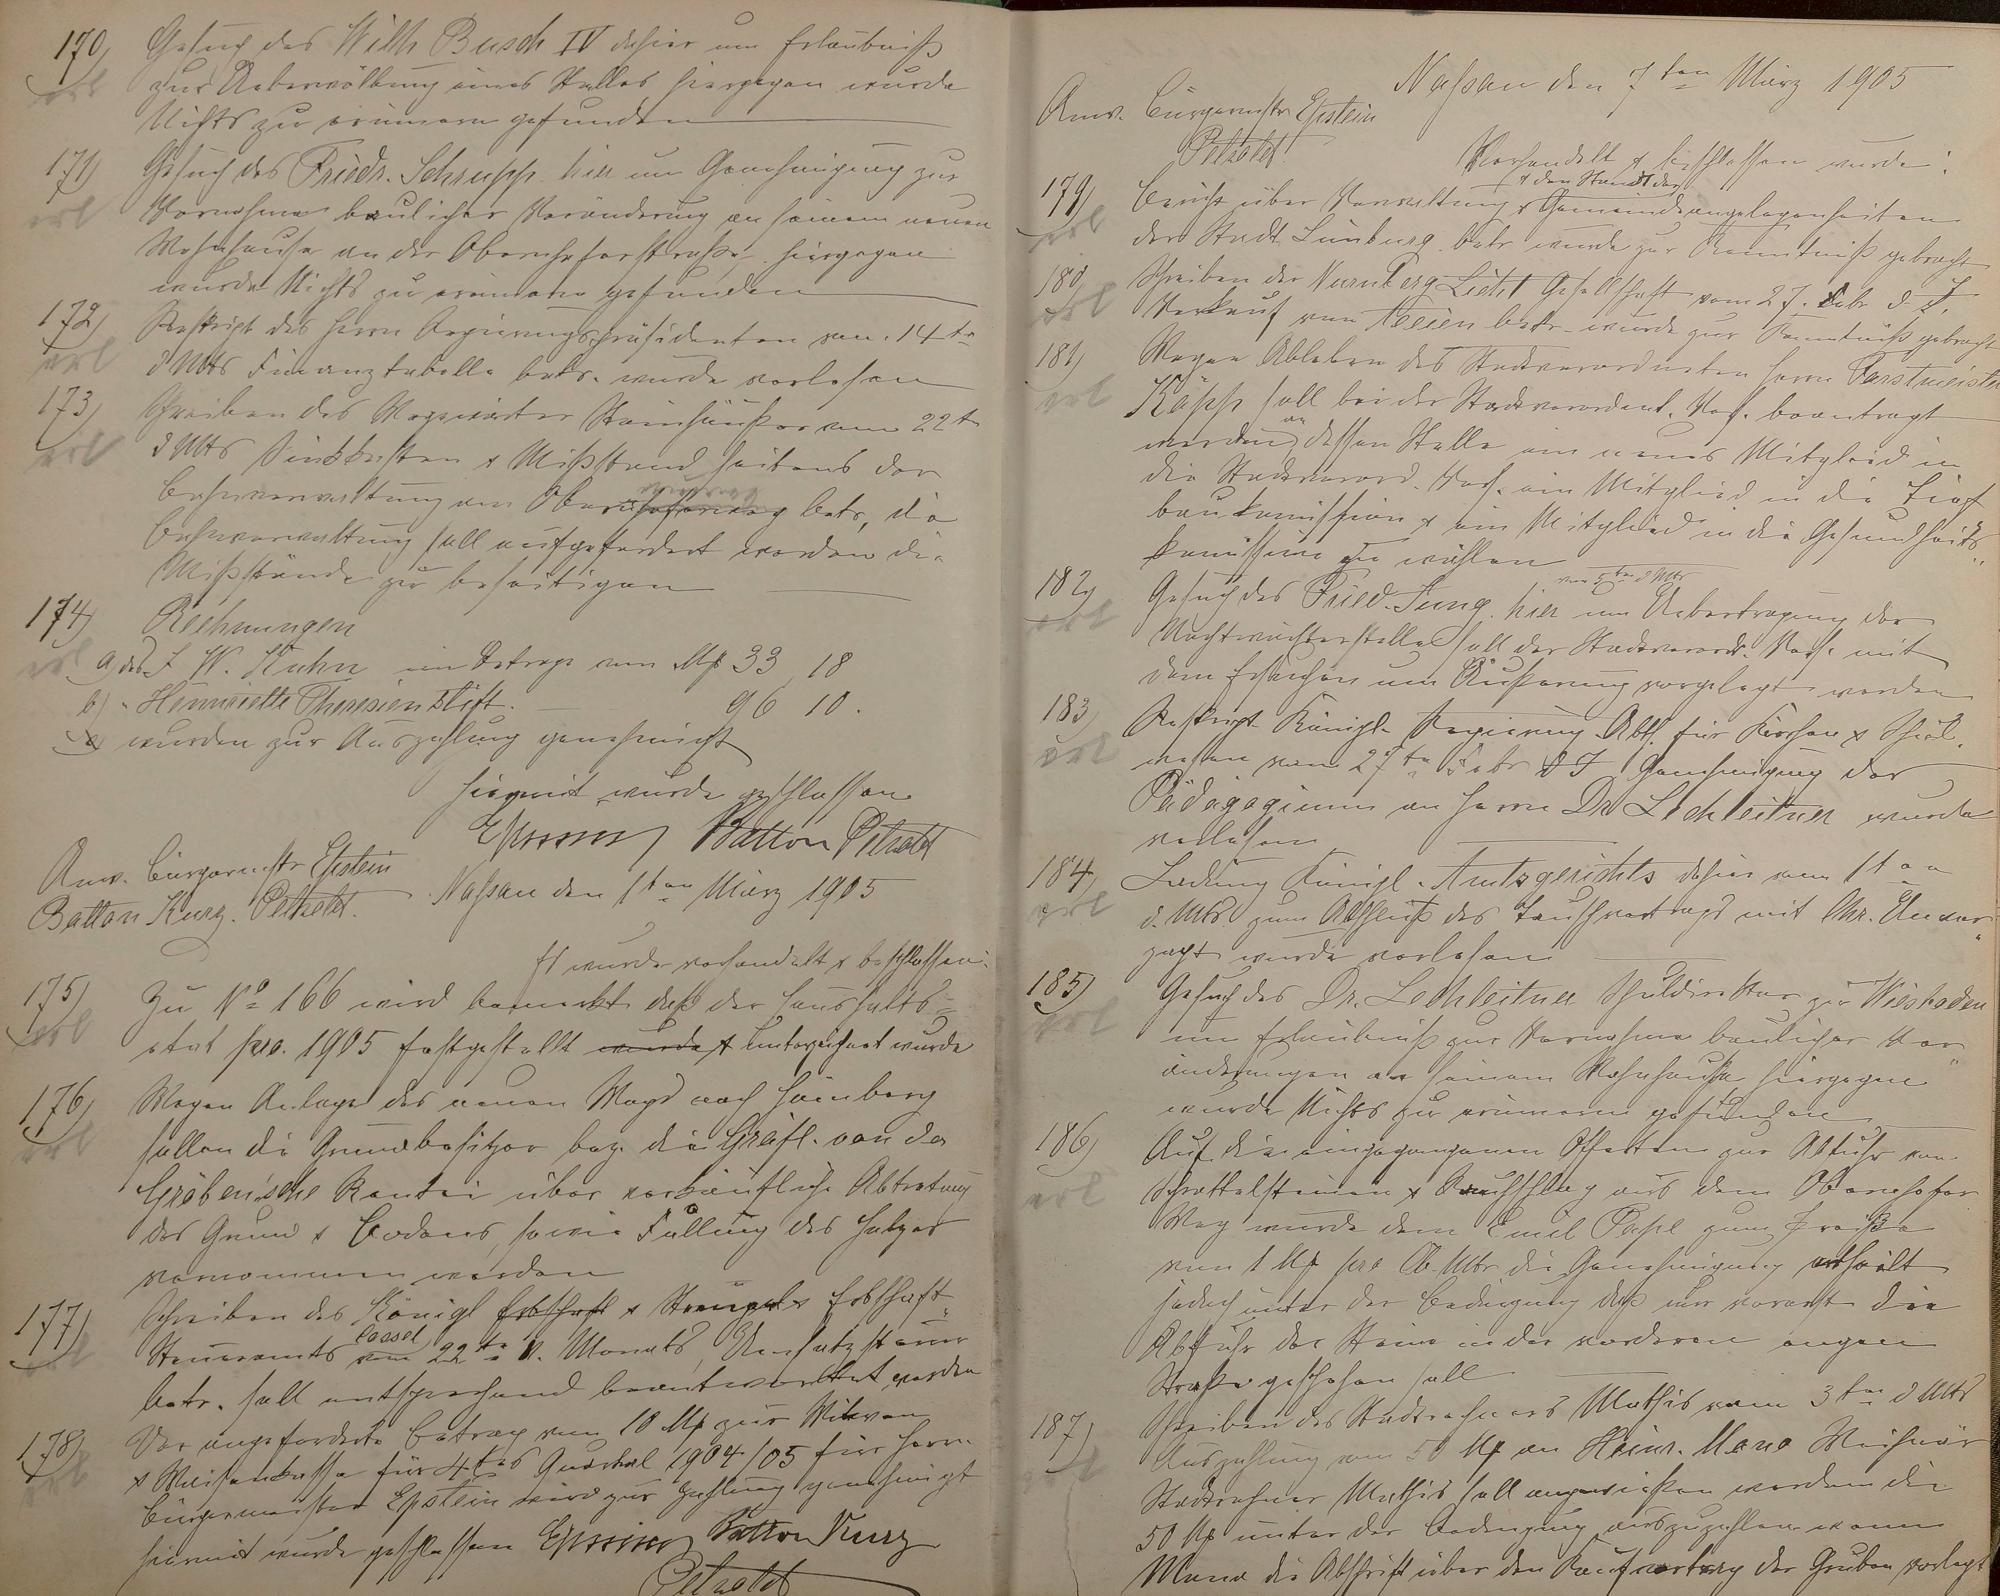 170) Gesuch des Wilh Busch IV dahier um Erlaubniß
erl
zur Ueberwölbung eines Stalles hiergegen wurde
Nichts zu erinnern gefunden
171) Gesuch des Friedr. Schrupp hier um Genehmigung zur
erl
Vornahme baulicher Veränderung an seinem neuen
Wohnhause an der Obernhoferstraße, hiergegen
wurde Nichts zu erinnern gefunden
172) Reskript des Herrn Regierungspräsidenten vom 14tn
erl
d Mts Finanztabelle betr. wurde verlesen
173) Schreiben des Wegewärter Steinhäußer vom 22tn
erl
d Mts Sinkkasten & Mißstand seitens der
Bahnverwaltung am Obernhoferweg betr, die
Bahnverwaltung soll aufgefordert werden die
Mißstände zu beseitigen
174) Rechnungen
erl
a) des J W. Kuhn im Betrage von Mk 33 18
b) " Henriette Theresien Stift. — 96 10.
wurden zur Auszahlung genehmigt
Hiermit wurde geschlossen
Epstein Batton Petzold
Anw. Bürgermstr Epstein
Batton Kurz. Petzold.
Nassau den 1ten März 1905
Es wurde verhandelt & beschlossen:
175) Zu No 166 wird bemerkt daß der Haushalts=
erl
etat pro. 1905 festgestellt wurde & unterzeichnet wurde
176) Wegen Anlage des neuen Wegs nach Hömberg
erl
sollen die Grundbesitzer bez. die Gräfl. von der
Gröben'sche Rentei über verkäufliche Abtretung
des Grund & Bodens, sowie Fällung des Holzes
vernommen werden
177) Schreiben des Königl Erbschaft & Stempel & Erbschaft-
erl
Steueramts Cassel vom 22tn v. Monats, Umsatzsteuer
betr. soll entsprechend beantwortet werden
178) Der angeforderte Betrag von 10 Mk zur Witwen
erl
& Waisenkasse für 4tes Quartal 1904/05 für Herrn
Bürgermeister Epstein wird zur Zahlung genehmigt
Hiermit wurde geschlossen Epstein Batton Kurz
Petzold
Nassau den 7ten März 1905
Anw. Bürgermstr Epstein
Petzold
Verhandelt & beschlossen wurde:
179) Bericht über Verwaltung & den Stand der Gemeindeangelegenheiten
erl
der Stadt Limburg betr. wurde zur Kenntniß gebracht
180) Schreiben der Nürnberg Licht Gesellschaft vom 27. Febr. d. J.
erl
Verkauf von betr. wurde zur Kenntniß gebracht
181) Wegen Ableben des Stadtverordneten Herrn Forstmeister
erl
Käpp soll bei der Stadtverordnet. Vers. beantragt
werden, an dessen Stelle ein neues Mitglied in
die Stadtverord. Vers. ein Mitglied in die Tief
baukomission & ein Mitglied in die Gesundheits-
komission zu wählen
182) Gesuch des Fried. Jung hier vom 5ten d Mts um Uebertragung der
erl
Nachtwächterstelle soll der Stadtverord. Vers. mit
dem Ersuchen um Äußerung vorgelegt werden
183) Reskript Königl. Regierung Abth. für Kirchen & Schul-
erl
wesen vom 27tn Febr d J Genehmigung des
Pädagogiums an Herrn Dr. Lechleitner wurde
verlesen
184) Ladung Königl. Amtsgerichts dahier vom 1ten
erl
d. Mts. zum Abschluß des Tauschvertrags mit Chr. Unver-
zagt wurde verlesen
185) Gesuch des Dr. Lechleitner Schuldirektor zu Wiesbaden
erl
um Erlaubniß zur Vornahme baulicher Ver-
änderungen an seinem Wohnhause, hiergegen
wurde Nichts zu erinnern gefunden
186) Auf die eingegangenen Offerten zur Abfuhr von
erl
Schrottelsteinen & aus dem Obernhofer
Weg wurde dem Emil Pohl zum Preiße
von 1 Mk pro Cb. Mtr. die Genehmigung ertheilt
jedoch unter der Bedingung daß nur vorerst die
Abfuhr der Steine in der vorderen engen
Straße geschehen soll
187) Schreiben des Stadtrechners Mathis vom 3ten d Mts
Auszahlung von 50 Mk an Heinr. Mono
Stadtrechner Mathis soll angewießen werden die
50 Mk unter der Bedingung auszuzahlen wenn
Mono die Abschrift über den Kaufvertrag der Gruben vorlegt